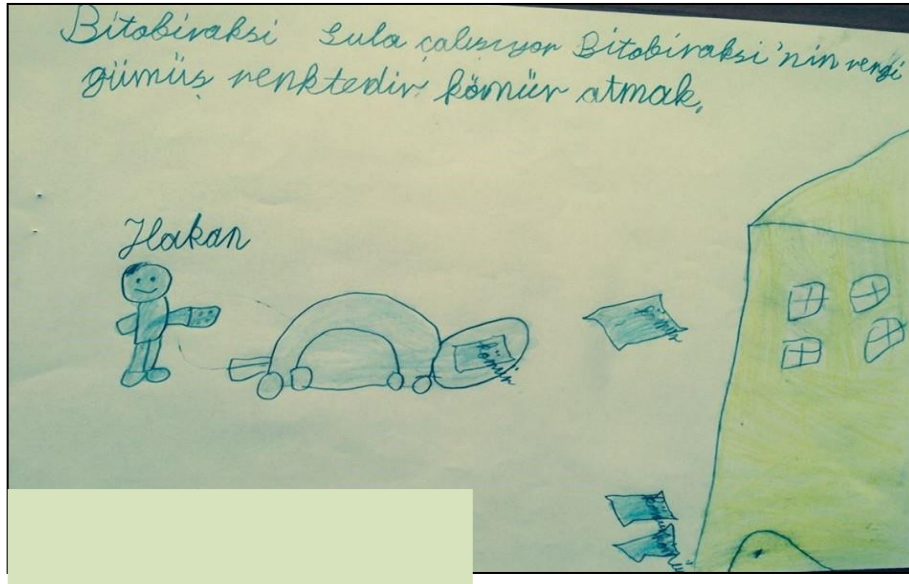 Bitobiraksi sula çalışıyor Bitobiraksi'nin rengi
gümüş renktedir kömür atmak.
Hakan
kömür
kömür
kömür
kömür